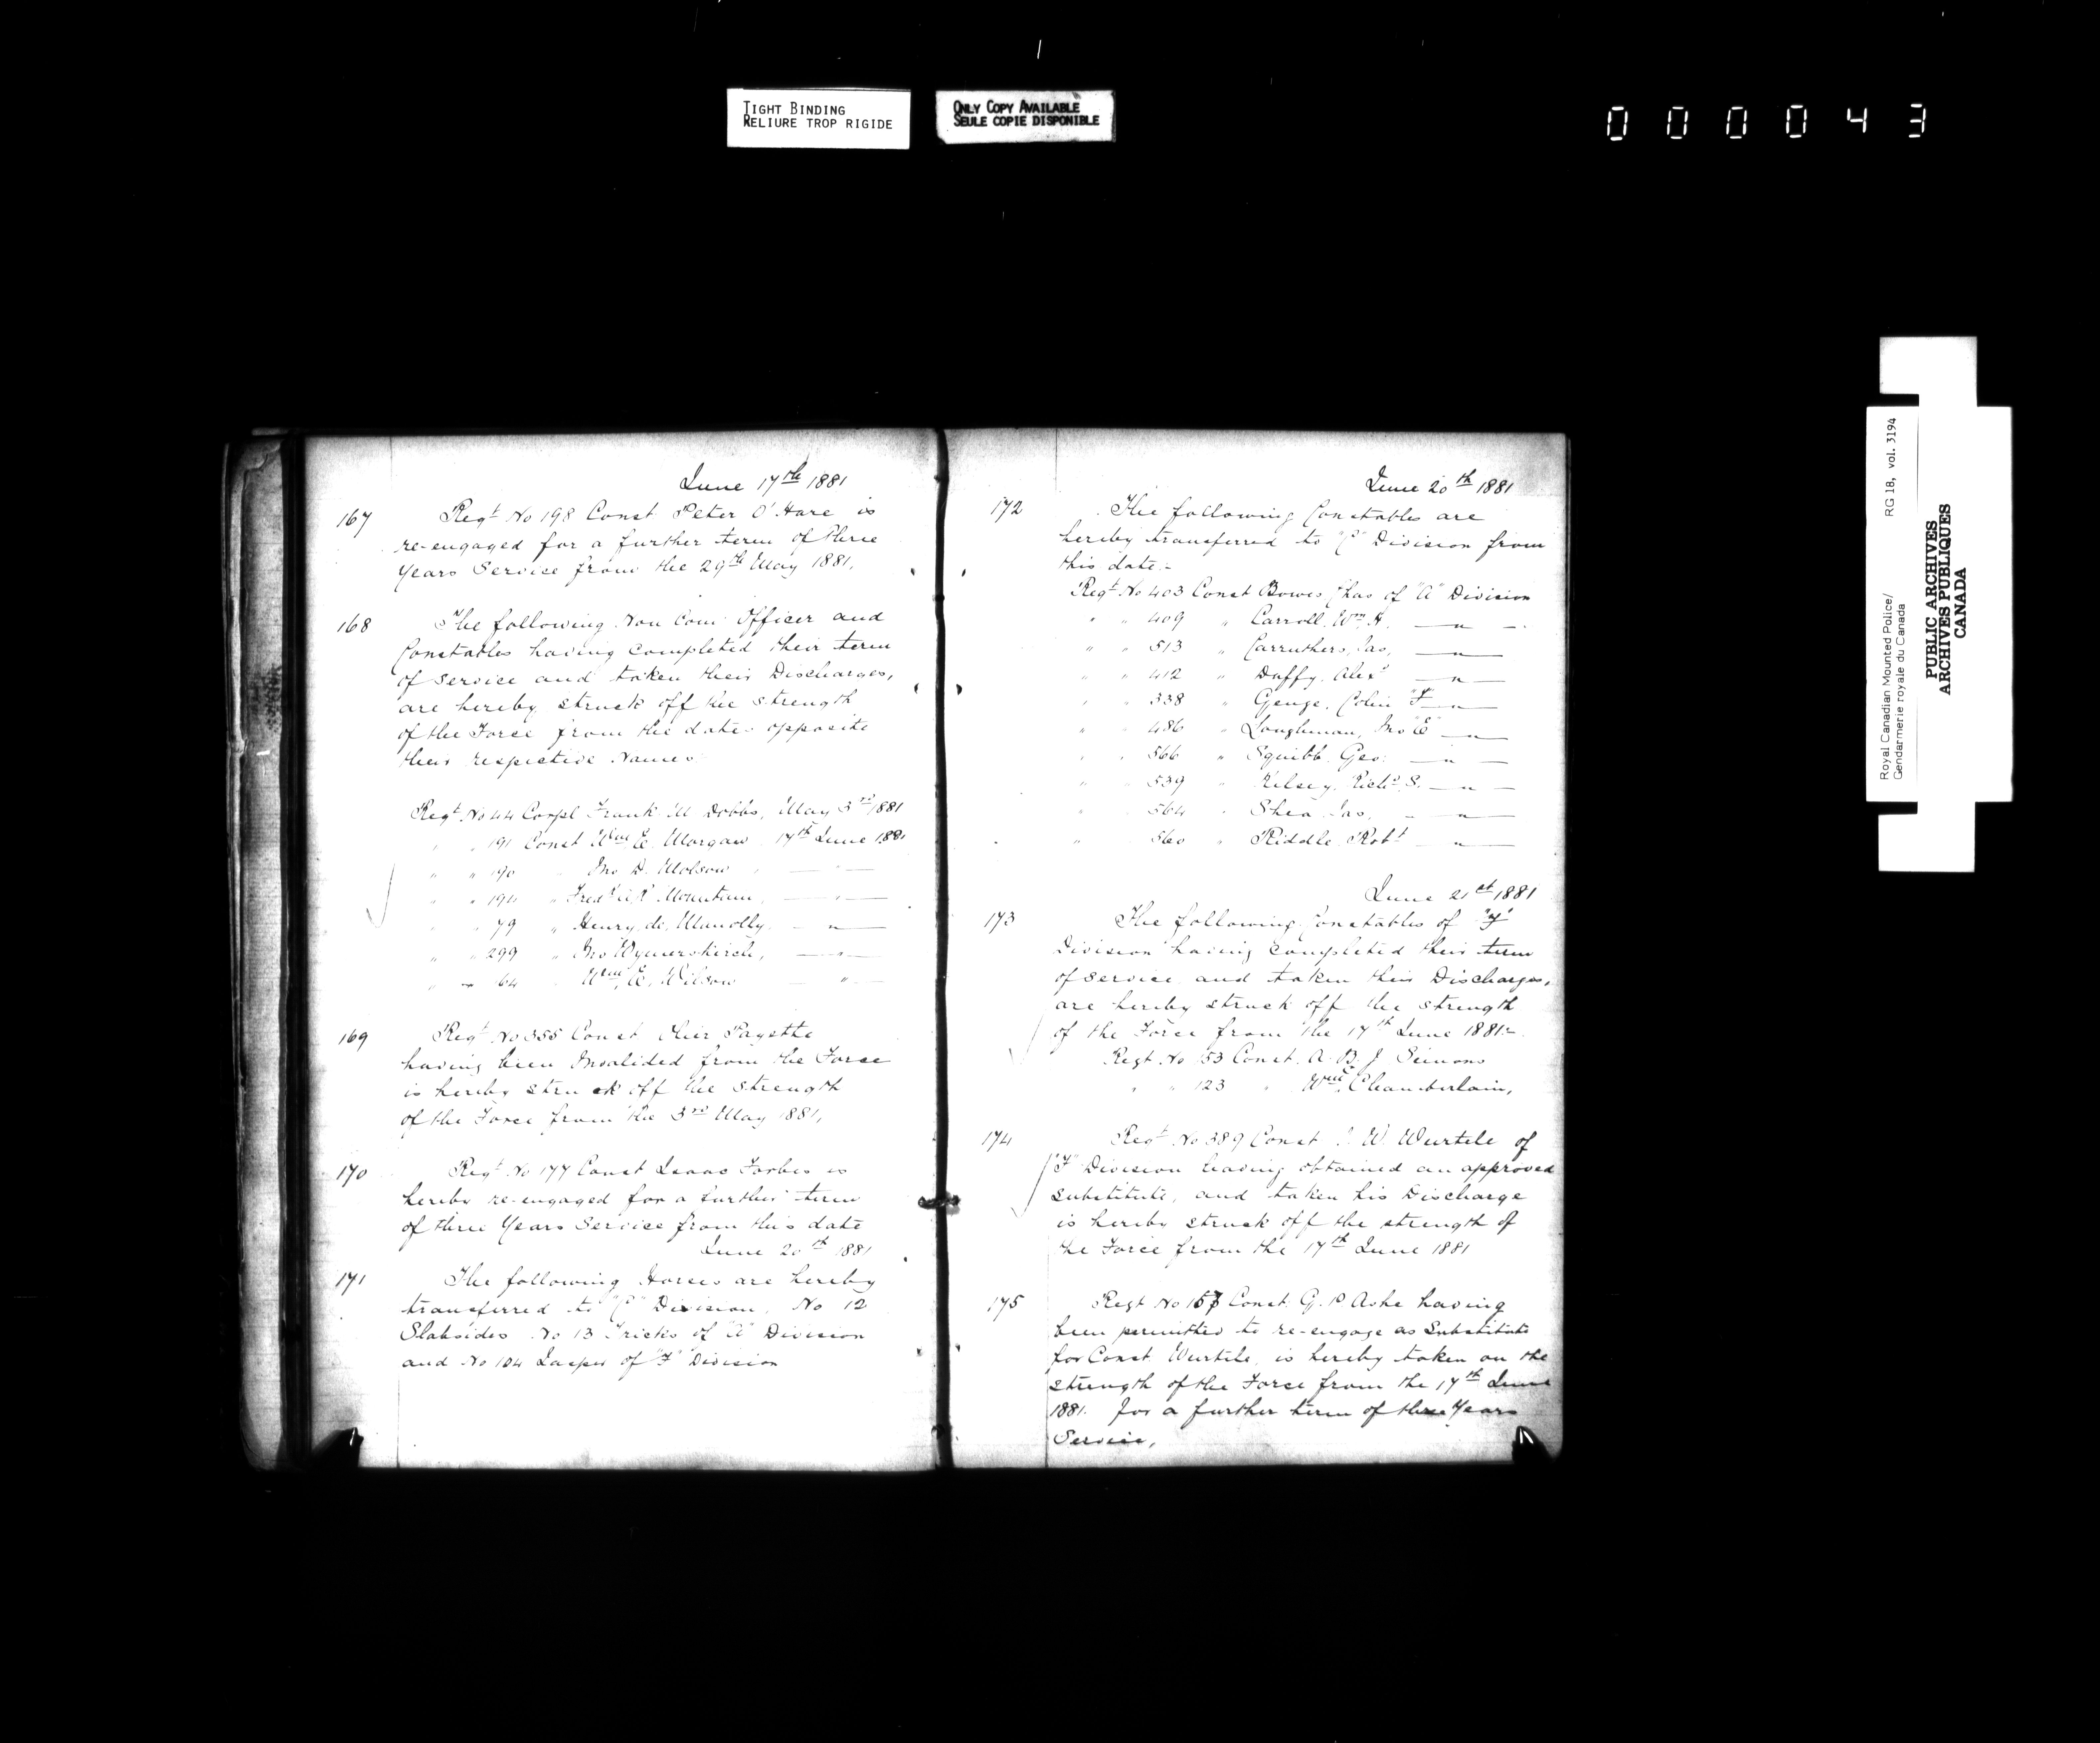 TIGHT BINDING
RELIURE TROP RIGIDE
ONLY COPY AVAILABLE
SEULE COPIE DISPONIBLE
000043
June 17th 1881
167 Regt No 198 Const Peter O'Hare is
re-engaged for a further term of three
Years Service from the 29th May 1881.
168 The following Non Com Officer and
Constables having completed their term
of service and taken their Discharges,
are hereby struck off the strength
of the Force from the dates opposite
their respective Names
Regt No 44 Corpl Frank M Dobbs, May 3rd 1881
" " 191 Const Wm E. Morgan 17th June 1881
" " 190 " Jno D. Molson — " —
" " 194 " Mountain, — " —
" " 79 " Henry de — " —
" " 299 " Jno — " —
" " 164 " Wm E. Wilson — " —
169 Regt No 355 Const Payette
having been Invalided from the Force
is hereby struck off the strength
of the Force from the 3rd May 1881,
170 Regt No 177 Const Isaac Forbes is
hereby re-engaged for a further term
of three Years Service from this date
June 20th 1881
171 The following Horses are hereby
transferred to "C" Division, No 12
Slabsides No 13 Tricks of "A" Division
and No 104 Jasper of "F" Division
June 20th 1881
172 The following Constables are
hereby transferred to "C" Division from
this date:-
Regt No 403 Const Bowes Chas of "A" Division
" " 409 " Carroll, Wm H. — " —
" " 513 " Carruthers, Jas, — " —
" " 412 " Duffy, Alexr — " —
" " 338 " Genge, Colin "F" — " —
" " 486 " Loughman, Jno "E" — " —
" " 566 " Squibb, Geo: — " —
" " 539 " Kelsey, Richd. S. — " —
" " 564 " Shea Jas, — " —
" " 560 " Riddle, Robt — " —
June 21st 1881
173 The following Constables of "F"
Division having completed their term
of service and taken their Discharges,
are hereby struck off the strength
of the Force from the 17th June 1881:-
Regt No 153 Const. A. B. J Simons
" " 123 " Wm Chamberlain,
174 Regt No 389 Const W. Wurtele of
"F" Division having obtained an approved
substitute, and taken his Discharge
is hereby struck off the strength of
the Force from the 17th June 1881
175 Regt No 157 Const. G. P Ashe having
been permitted to re-engage as Substitute
for Const. Wurtele, is hereby taken on the
strength of the Force from the 17th June
1881. for a further term of three Years
Service,
Royal Canadian Mounted Police/ RG 18, vol. 3194
Gendarmerie royale du Canada
PUBLIC ARCHIVES
ARCHIVES PUBLIQUES
CANADA